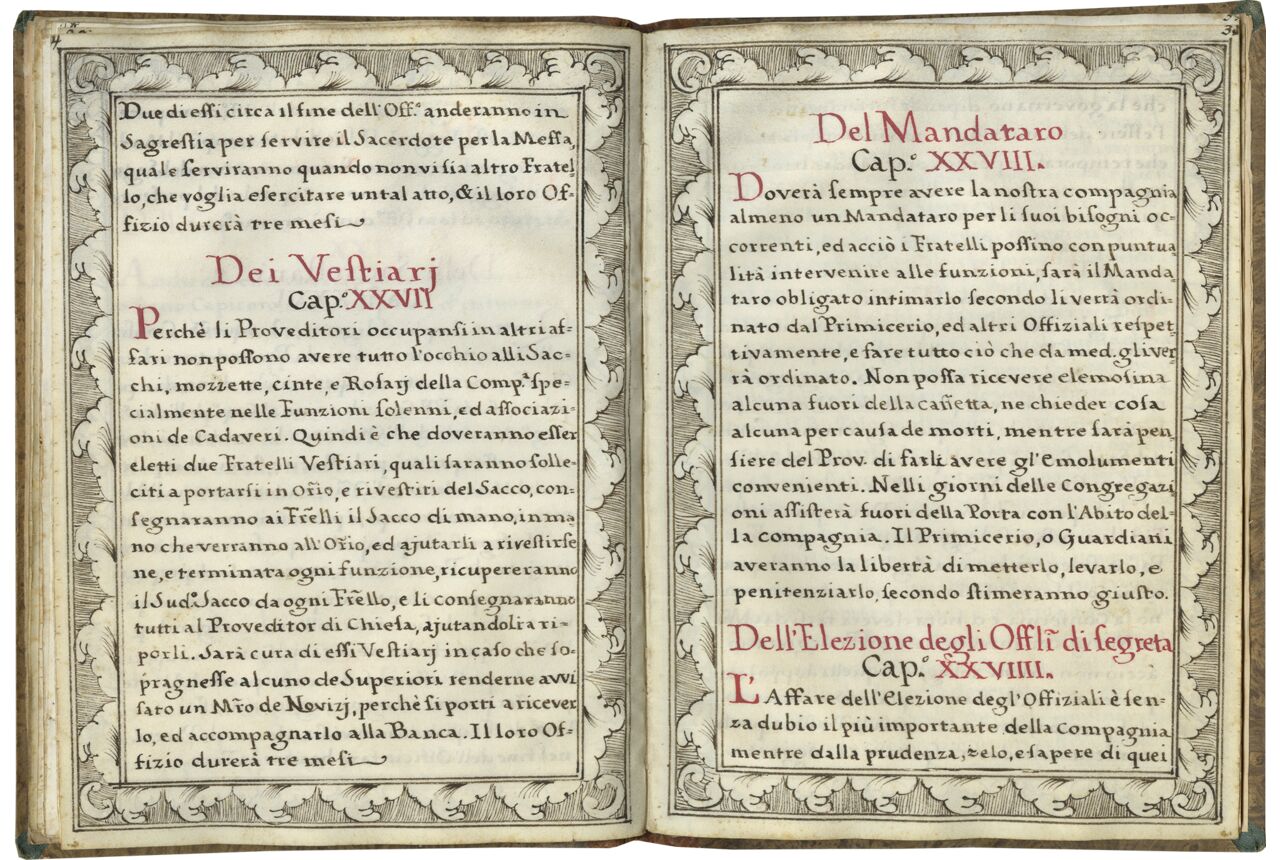 Due di eſſi circa il fine dell'Off.° anderanno in
Sagreſtia per ſervire il Sacerdote per la Meſſa,
quále ſerviranno quando non vi ſia altro Fratel
lo, che voglia eſercitare un tal atto, & il loro Of=
fizio durerà tre meſi
Dei Veſtiarj
Cap.° XXVII
Perchè li Proveditori occupanſi in altri af=
fari non poſſono avere tutto l'occhio alli Sac=
chi, mozzette, cinte, e Roſarj della Comp.ª ſpe=
cialmente nelle Funzioni ſolenni, ed aſſociazi=
oni de Cadaveri. Quindi è che doveranno eſſer
eletti due Fratelli Veſtiari, quali ſaranno ſolle=
citi a portarſi in Or̃io, e riveſtiti del Sacco, con=
ſegnaranno ai Fr̃elli il Sacco di mano, in ma
no che verranno all'Or̃io, ed ajutarli a riveſtirſe
ne, e terminata ogni funzione, ricupereranno
il Sud.° Sacco da ogni Fr̃ello, e li conſegnaranno
tutti al Proveditor di Chieſa, ajutandoli a ri=
porli. Sarà cura di eſſi Veſtiarj in caſo che ſo=
pragneſſe alcuno de Superiori renderne avvi
ſato un Mr̃o de Novizj, perchè ſi porti a ricever
lo, ed accompagnarlo alla Banca. Il loro Of=
fizio durerà tre meſi
Del Mandataro
Cap.° XXVIII.
Doverà ſempre avere la noſtra compagnia
almeno un Mandataro per li ſuoi biſogni oc=
correnti, ed acciò i Fratelli poſſino con puntua
lità intervenire alle funzioni, ſarà il Manda
taro obligato intimarlo ſecondo li verrà ordi=
nato dal Primicerio, ed altri Offiziali reſpet
tivamente, e fare tutto ciò che da med. gli ver
rà ordinato. Non poſſa ricevere elemoſina
alcuna fuori della caſſetta, ne chieder coſa
alcuna per cauſa de morti, mentre ſarà pen
ſiere del Prov. di farli avere gl'Emolumenti
convenienti. Nelli giorni delle Congregazi
oni aſſiſterà fuori della Porta con l'Abito del=
la compagnia. Il Primicerio, o Guardiani
averanno la libertà di metterlo, levarlo, e
penitenziarlo, ſecondo ſtimeranno giuſto.
Dell'Elezione degli Offli̅ di ſegreta
Cap.° XXVIIII.
L'Affare dell'Elezione degl'Offiziali è ſen=
za dubio il più importante della Compagnia
mentre dalla prudenza, zelo, e ſapere di quei